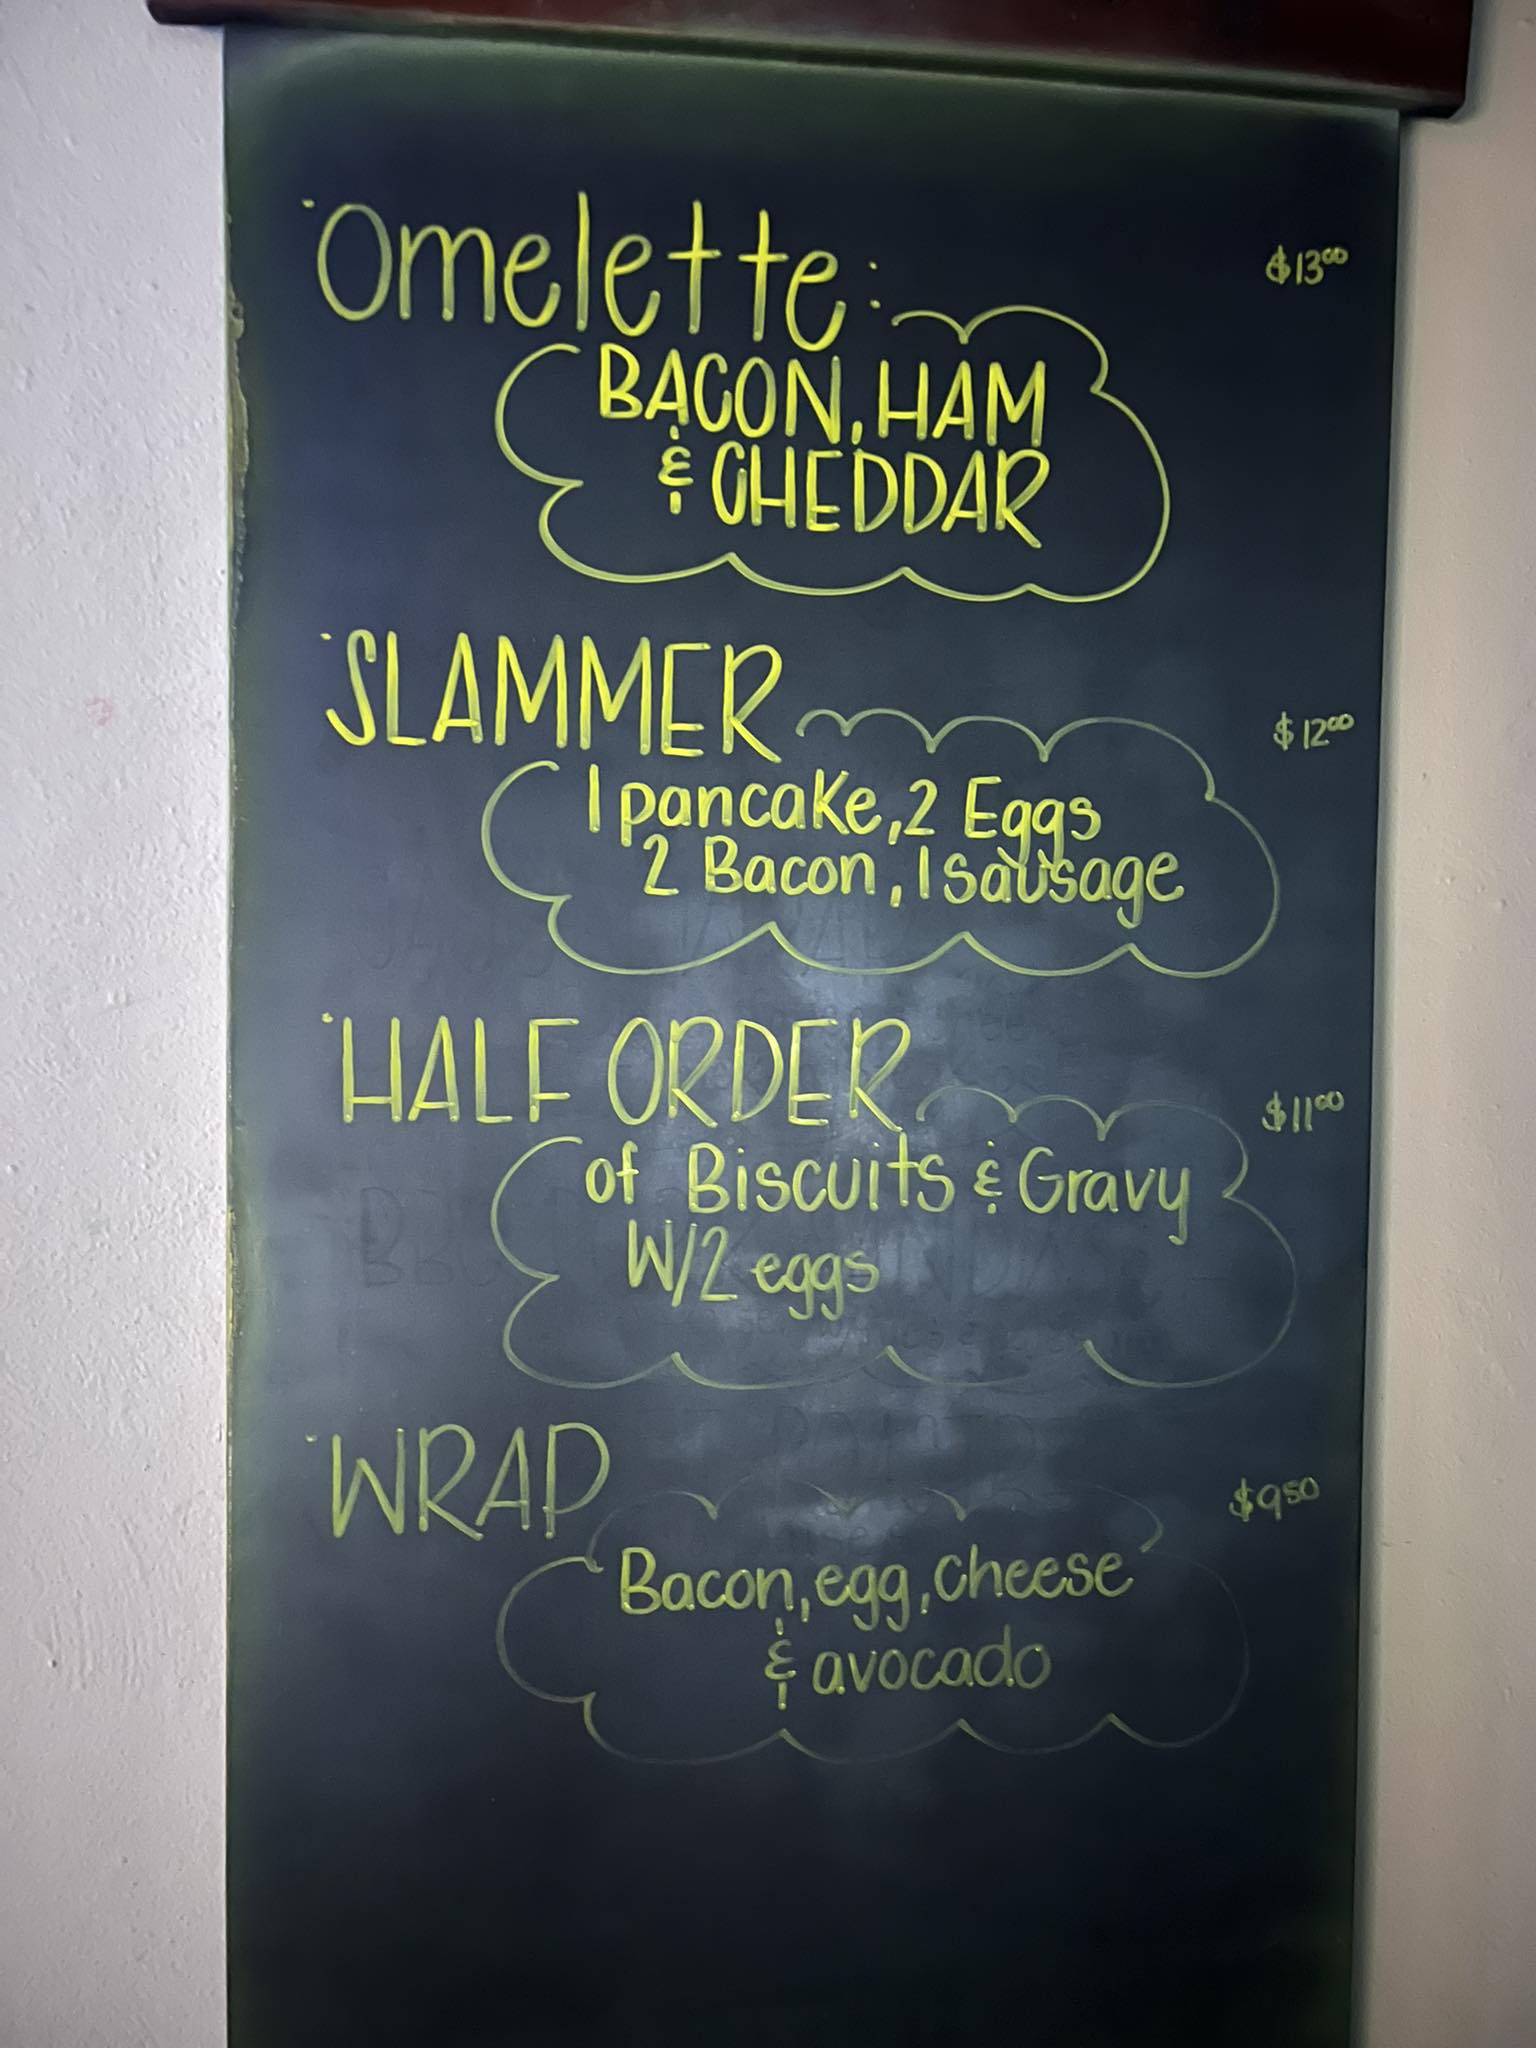 Omelette: $13⁰⁰
BACON, HAM
& CHEDDAR
SLAMMER $12⁰⁰
1 pancake, 2 Eggs
2 Bacon, 1 sausage
HALF ORDER $11⁰⁰
of Biscuits & Gravy
W/2 eggs
WRAP $9⁵⁰
Bacon, egg, cheese
& avocado